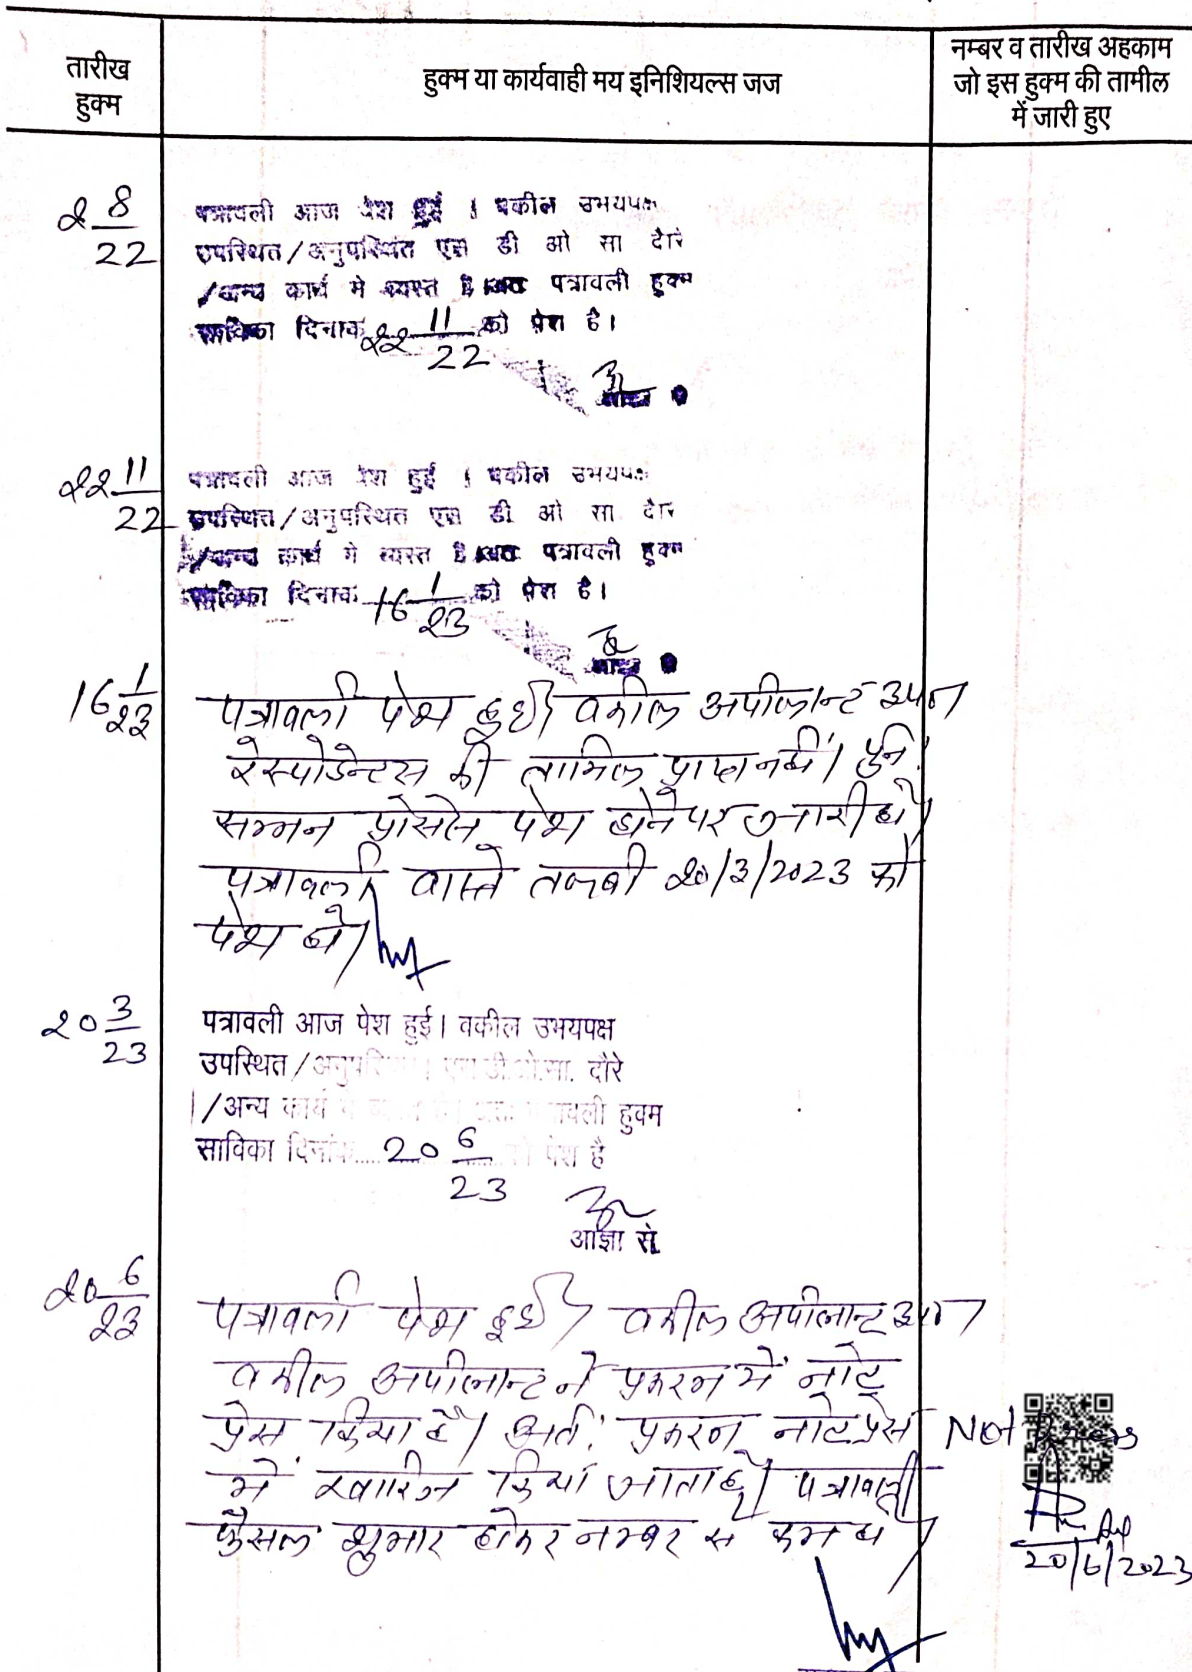 तारीख
हुक्म
हुक्म या कार्यवाही मय इनिशियल्स जज
नम्बर व तारीख अहकाम
जो इस हुक्म की तामील
में जारी हुए
2 8/22
पत्रावली आज पेश हुई । वकील उभयपक्ष
उपस्थित/अनुपस्थित एस डी ओ सा दौरे
/अन्य कार्य मे व्यस्त है अतः पत्रावली हुक्म
साविका दिनांक 22 11/22 को पेश है।
22 11/22
पत्रावली आज पेश हुई । वकील उभयपक्ष
उपस्थित/अनुपस्थित एस डी ओ सा दौरे
/अन्य कार्य मे व्यस्त है अतः पत्रावली हुक्म
साविका दिनांक 16 1/23 को पेश है।
16 1/23
पत्रावली पेश हुई। वकील अपीलान्ट उप०।
रेस्पोडेन्टस की तामिल प्राप्त नहीं। पुनः
सम्मन प्रोसेस पेश होने पर जारी हो।
पत्रावली वास्ते तलबी 20/3/2023 को
पेश हो।
20 3/23
पत्रावली आज पेश हुई। वकील उभयपक्ष
उपस्थित/अनुपस्थित एस.डी.ओ.सा. दौरे
/अन्य कार्य में अतः पत्रावली हुक्म
साविका दिनांक 20 6/23 को पेश है
आज्ञा से
20 6/23
पत्रावली पेश हुई। वकील अपीलान्ट उप०।
वकील अपीलान्ट ने प्रकरन में नोट
प्रेस किया है। अतः प्रकरन नोट प्रेस
में खारिज किया जाता है। पत्रावली
फैसल शुमार होकर नम्बर से कम हो।
Not Press
20/6/2023